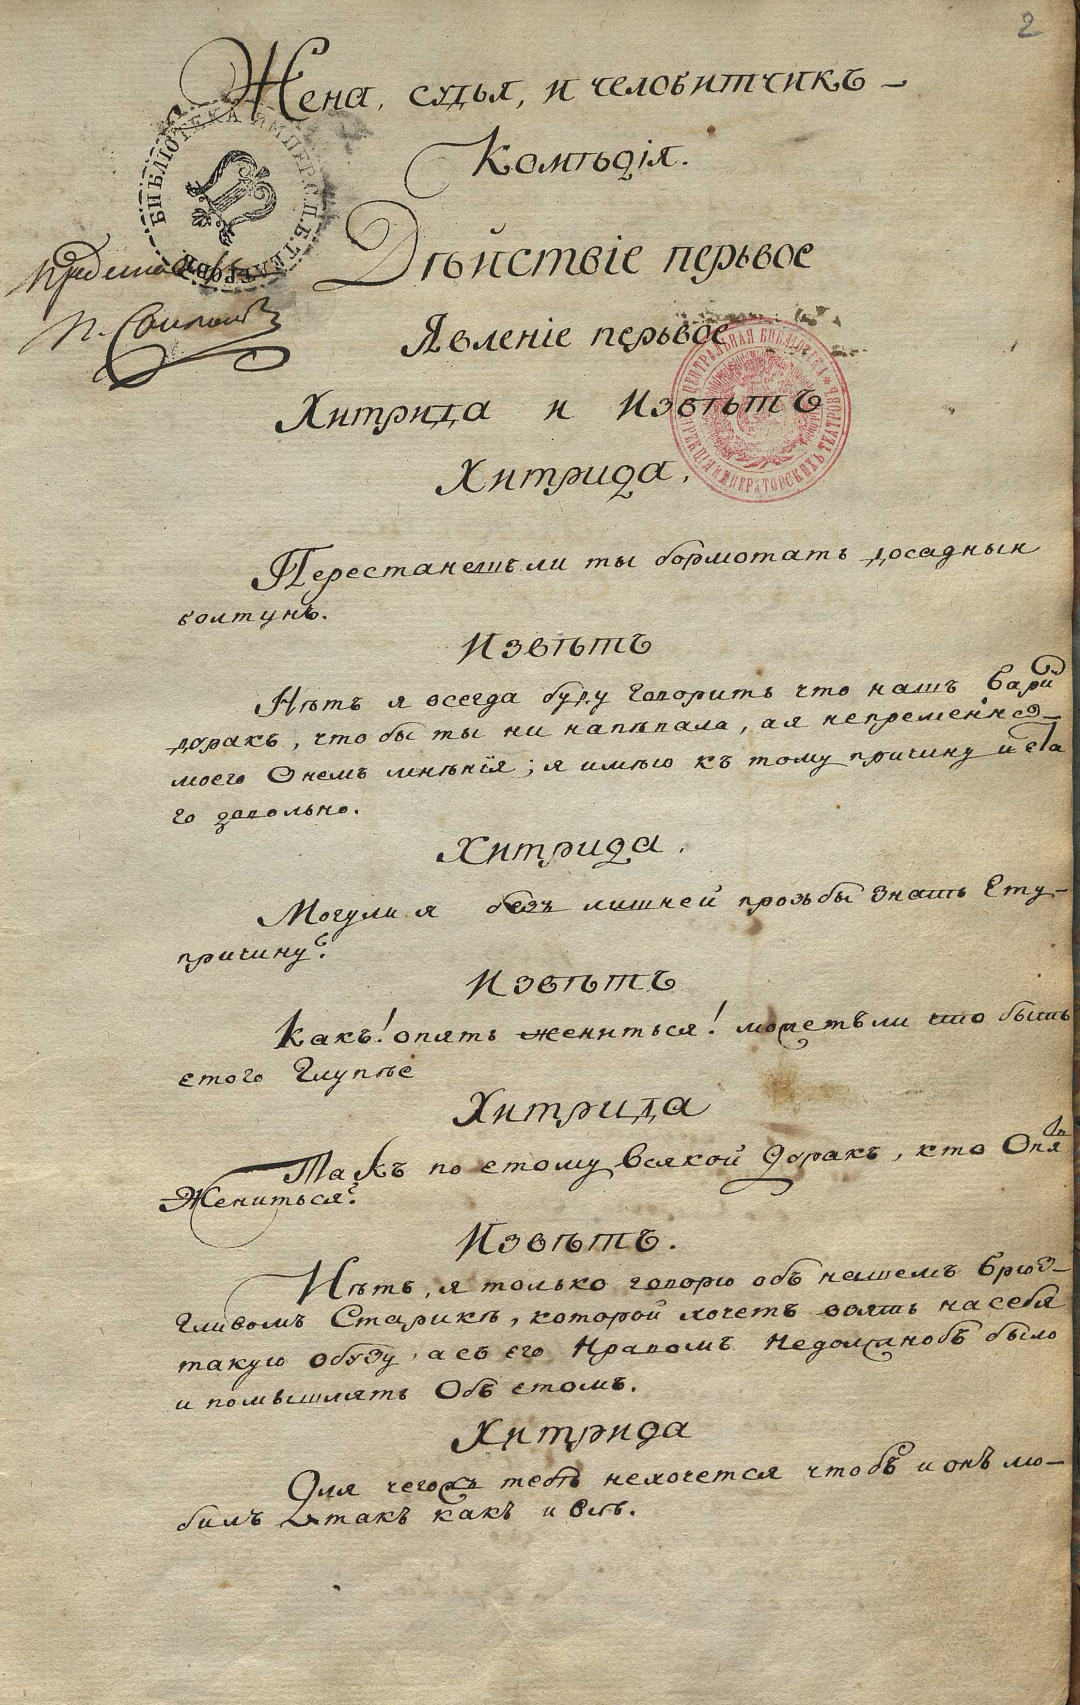 2
Жена, судья, и челобитчикъ –
Комѣдія.
Дѣйствіе перьвое
Явленіе перьвое
Хитрида и Извѣтъ
Хитрида.
Перестанешъ ли ты бормотать досадныи
болтунъ.
Извѣтъ
Нѣтъ я всегда буду говорить что нашъ баринъ
дуракъ, что бы ты ни напѣвала, а я непременю
моего Онемъ мнѣнія; я имѣю къ тому причину и
го довольно.
Хитрида.
Могули я безъ лишней прозьбы Знать Ету–
причину?
Извѣтъ
Какъ! опять жениться! можетъли что быть
етого Глупѣе
Хитрида
Такъ по етому Всякой дуракъ, кто Опять
Жениться?
Извѣтъ.
Нѣтъ, я только говорю объ нашемъ брюз–
гливомъ Старикѣ, которой хочетъ взять на себя
такую обузу, а съ его Нравомъ Недолжнобъ было
и помышлять Объ етомъ.
Хитрида
Для чегожъ тебѣ нехочется чтобъ и онъ лю–
билъ такъ какъ и всѣ.
БИБЛІОТЕКА ИМПЕР. С.П.Б. ТЕАТРОВЪ
ЦЕНТРАЛЬНАЯ БИБЛІОТЕКА ДИРЕКЦІЯ ИМПЕРАТОРСКИХЪ ТЕАТРОВЪ